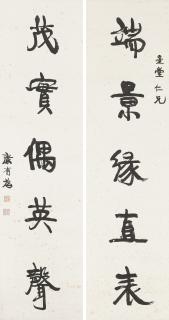 端景緣直表
茂實偶英聲
仁兄
康有為